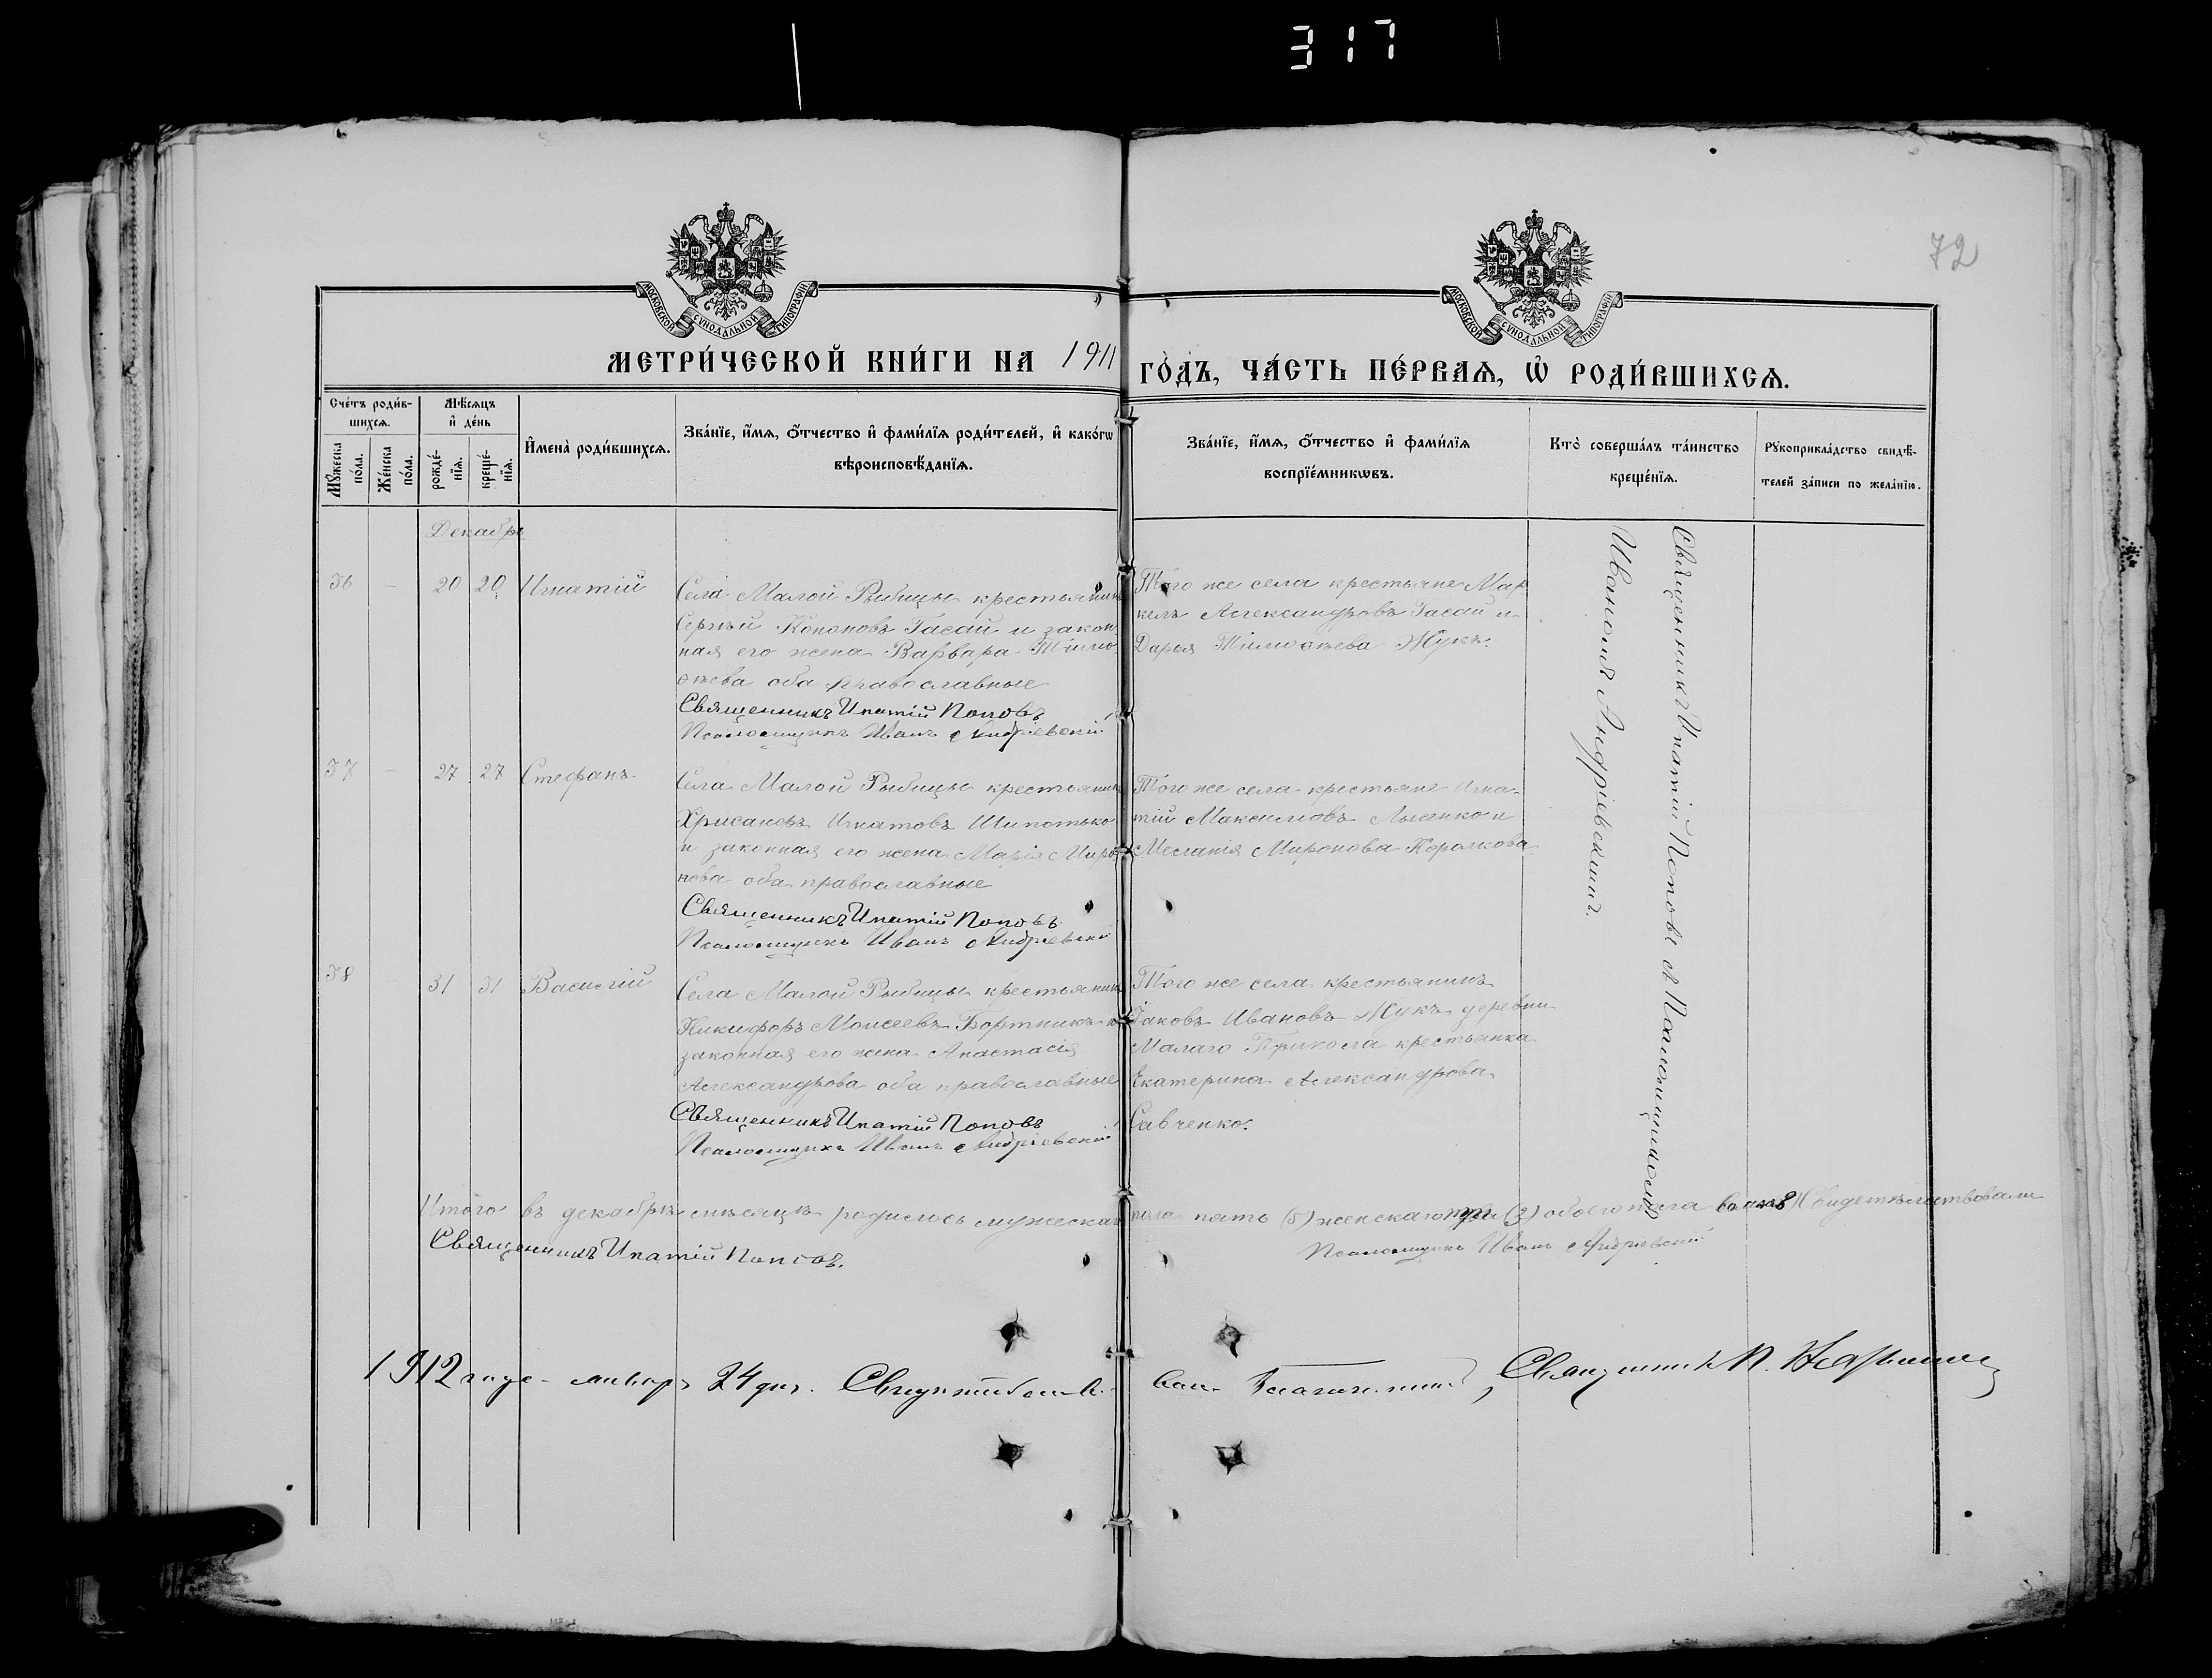 317
72
МОСКОВСКОЙ СѴНОДАЛЬНОЙ ТИПОГРАФІИ
МОСКОВСКОЙ СѴНОДАЛЬНОЙ ТИПОГРАФІИ
МЕТРИ́ЧЕСКОЙ КНИ́ГИ НА 1911 ГО́ДЪ, ЧА́СТЬ ПЕ́РВАѦ, Ѡ҆ РОДИ́ВШИХСѦ.
Сче́тъ роди́в-
шихсѧ.
Мꙋ́жеска по́ла.
Же́нска по́ла.
Мѣ́сѧцъ
и҆ де́нь
рожде́-
нїѧ.
креще́-
нїѧ.
И҆мена̀ роди́вшихсѧ.
Зва́нїе, и҆́мѧ, ѻ҆́тчество и҆ фами́лїѧ роди́телей, и҆ како́гѡ
вѣроисповѣ́данїѧ.
Зва́нїе, и҆́мѧ, ѻ҆́тчество и҆ фами́лїѧ
воспрїе́мникѡвъ.
Кто̀ соверша́лъ та́инство
креще́нїѧ.
Рꙋкоприкла́дство свидѣ́-
телей за́писи по жела́нїю.
Декабрь
36 – 20 20 Игнатій
Села Малой Рыбицы крестьянинъ
Сергѣй Кононовъ Гасай и закон-
ная его жена Варвара Тимо-
ѳеева оба православные
Священникъ Ипатій Поповъ
Псаломщикъ Иванъ Андріевскій
Того же села крестьяне Мар
келъ Александровъ Гасай и
Дарья Тимоѳеева Жукъ.
37 – 27 27 Стефанъ
Села Малой Рыбицы крестьянинъ
Хрисанѳъ Игнатовъ
и законная его жена Марія Миро
нова оба православные
Священникъ Ипатій Поповъ
Псаломщикъ Иванъ Андріевскій
Того же села крестьяне Игна-
тій Максимовъ Лысенко и
Меланія Миронова
38 31 31 Василій
Села Малой Рыбицы крестьянинъ
Никифоръ Моисеевъ Бортникъ и
законная его жена Анастасія
Александрова оба православные
Священникъ Ипатій Поповъ
Псаломщикъ Иванъ Андріевскій
Того же села крестьянинъ
Іаковъ Ивановъ Жукъ деревни
Малаго Прикола крестьянка
Екатерина Александрова
Савченко.
Священникъ Ипатій Поповъ съ Псаломщикомъ
Иваномъ Андріевскимъ.
Итого въ декабрѣ мѣсяцѣ родилось мужеска пола пять (5) женскаго три (3) обоего пола 8 Свидетельствовали
Священникъ Ипатій Поповъ.
Псаломщикъ Иванъ Андріевскій
1912 года январ 24 дня. Благочинный, Священникъ